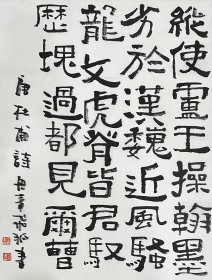 縱使盧王操翰墨
劣於漢魏近風騷
龍文虎脊皆君馭
歷塊過都見爾曹
唐杜甫詩 書